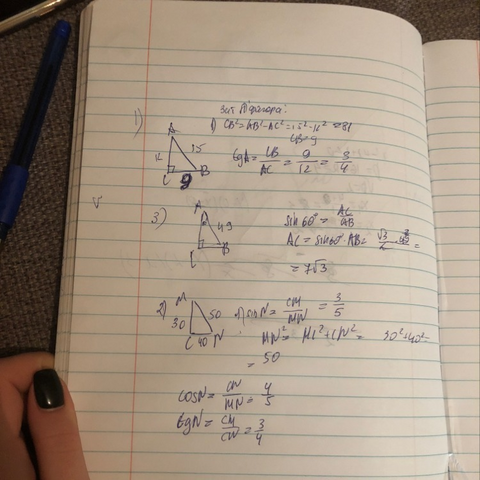 1)
За т. Піфагора:
A
15
C
9
B
1) CB² = AB² - AC² = 15² - 12² = 81
CB = 9
tgA = CB/AC = 9/12 = 3/4
V
3)
A
C
B
sin60° = AC/AB
AC = sin60° · AB =
= 7√3
2)
M
30
50
C
40
N
1) sinN = CM/MN = 3/5
MN² = MC² + CN² = 30² + 40² =
= 50
cosN = CN/MN = 4/5
tgN = CM/CN = 3/4